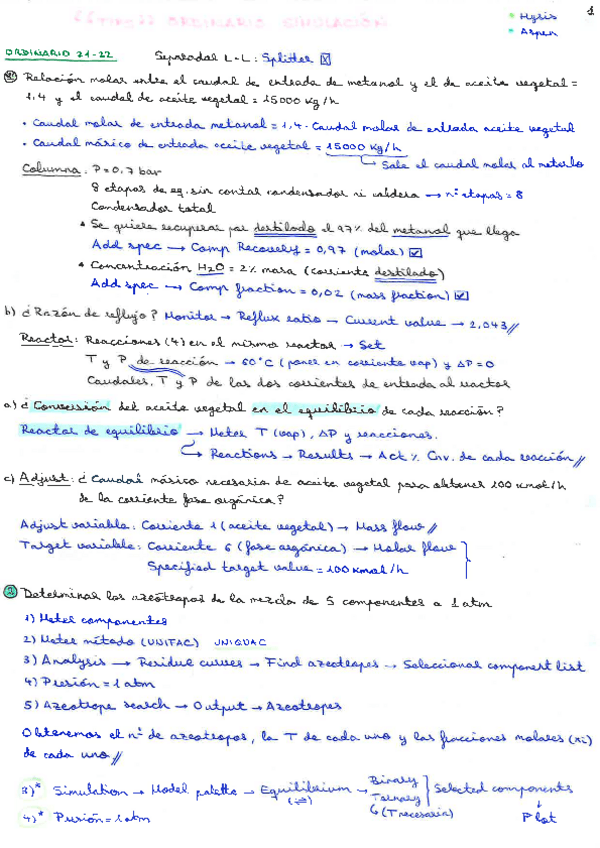 ORDINARIO SIMULACIÓN
1
* Hysis
* Aspen
ORDINARIO 21-22 Separador L-L: Splitter ☒
Relación molar entre el caudal de entrada de metanol y el de aceite vegetal =
1,4 y el caudal de aceite vegetal = 15000 kg/h
• Caudal molar de entrada metanol = 1,4 · Caudal molar de entrada aceite vegetal
• Caudal másico de entrada aceite vegetal = 15000 kg/h
↳ Sale el caudal molar al meterlo
Columna. P = 0,7 bar
8 etapas de eq. sin contar condensador ni caldera → nº etapas = 8
Condensador total
• Se quiere recuperar por destilado el 97% del metanol que llega
Add spec → Comp Recovery = 0,97 (molar) ☑
• Concentración H2O = 2% masa (corriente destilado)
Add spec → Comp fraction = 0,02 (mass fraction) ☑
b) ¿Razón de reflujo? Monitor → Reflux ratio → Current value → 2,043//
Reactor: Reacciones (4) en el mismo reactor → Set
T y P de reacción → 60°C (poner en corriente vap) y ΔP = 0
Caudales, T y P de las dos corrientes de entrada al reactor
a) ¿Conversión del aceite vegetal en el equilibrio de cada reacción?
Reactor de equilibrio → Meter T (vap), ΔP y reacciones.
↳ Reactions → Results → Act % Cnv. de cada reacción//
c) Adjust: ¿Caudal másico necesario de aceite vegetal para obtener 100 kmol/h
de la corriente fase orgánica?
Adjust variable: Corriente 1 (aceite vegetal) → Mass flow//
Target variable: Corriente 6 (fase orgánica) → Molar flow
Specified target value = 100 kmol/h
2 Determinar los azeótropos de la mezcla de 5 componentes a 1 atm
1) Meter componentes
2) Meter método (UNIFAC) UNIQUAC
3) Analysis → Residue curves → Find azeotropes → Seleccionar component list
4) Presión = 1 atm
5) Azeotrope search → Output → Azeotropes
Obtenemos el nº de azeótropos, la T de cada uno y las fracciones molares (xi)
de cada uno//
3)* Simulation → Model palette → Equilibrium (⇌) → Binary
Ternary
↳ (T necesaria)
Selected components
↓
Plot
4)* Presión = 1 atm